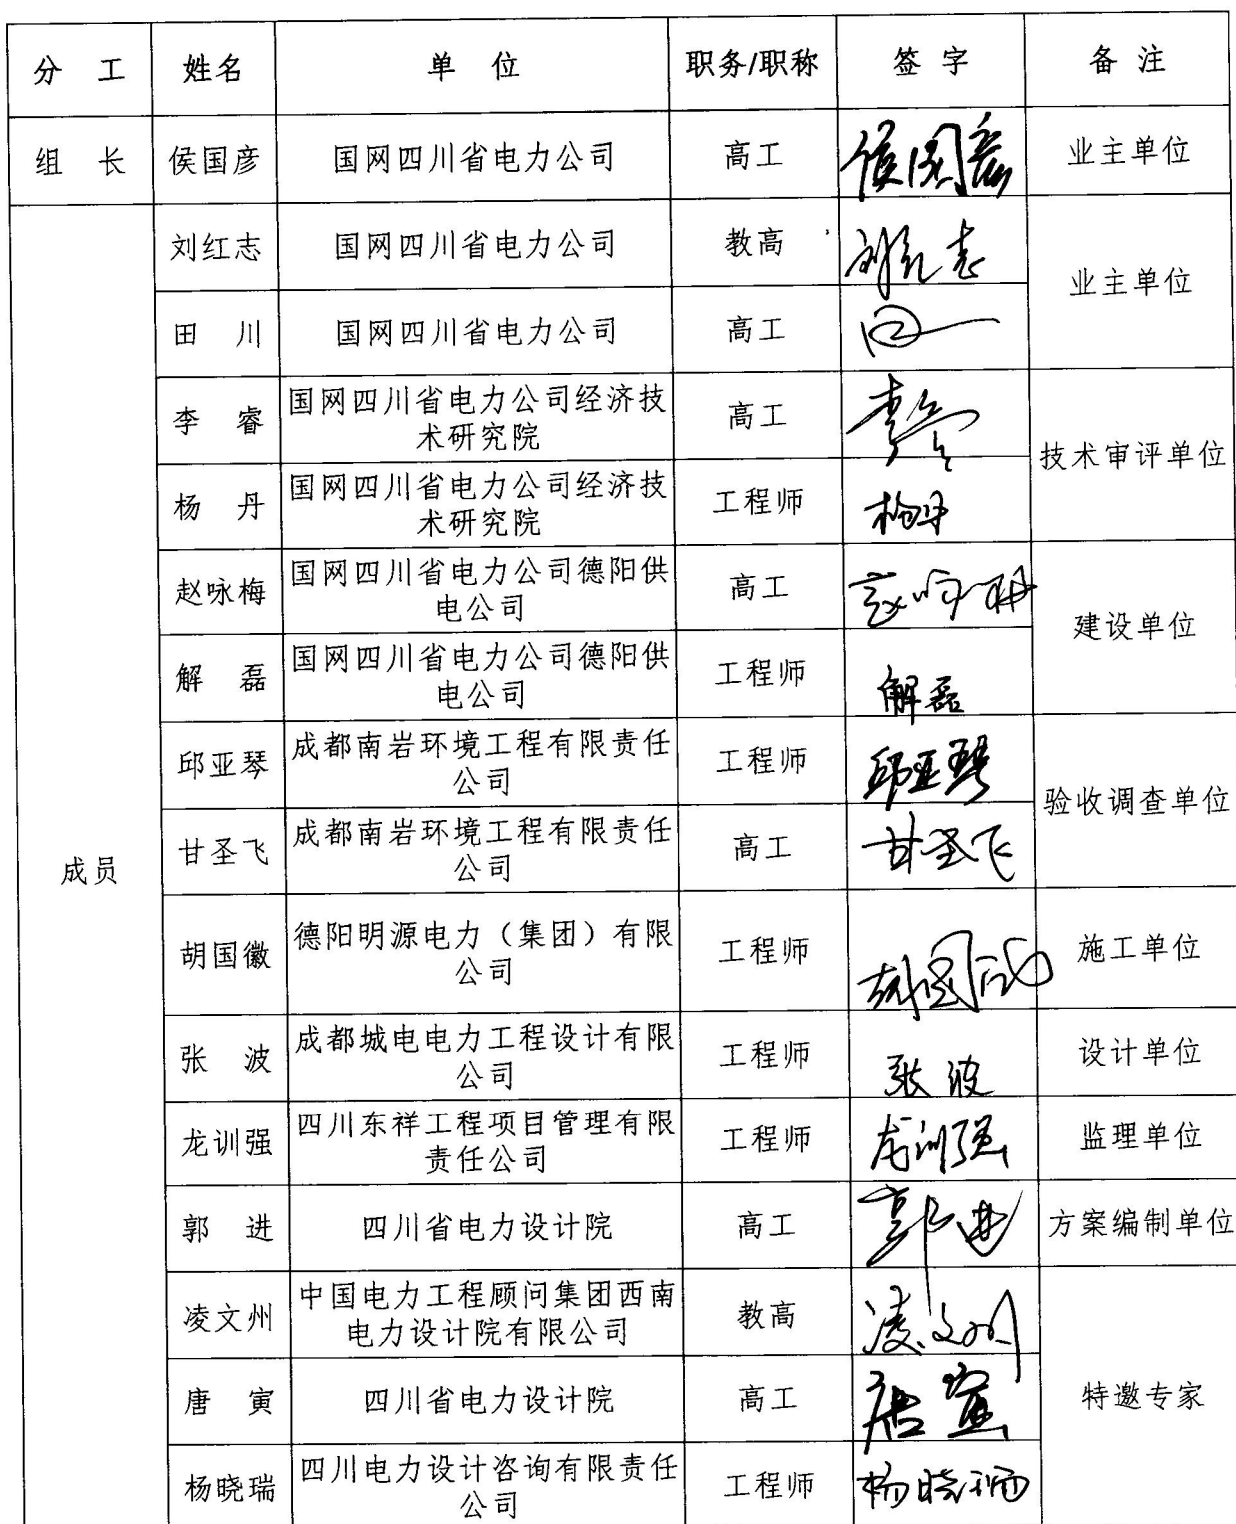 分 工 姓名 单 位 职务/职称 签 字 备 注
组 长 侯国彦 国网四川省电力公司 高工 侯国彦 业主单位
成员
刘红志 国网四川省电力公司 教高 刘红志
业主单位
田 川 国网四川省电力公司 高工
李 睿 国网四川省电力公司经济技
术研究院 高工 李睿
技术审评单位
杨 丹 国网四川省电力公司经济技
术研究院 工程师 杨丹
赵咏梅 国网四川省电力公司德阳供
电公司 高工 赵咏梅
建设单位
解 磊 国网四川省电力公司德阳供
电公司 工程师 解磊
邱亚琴 成都南岩环境工程有限责任
公司 工程师 邱亚琴
验收调查单位
甘圣飞 成都南岩环境工程有限责任
公司 高工 甘圣飞
胡国徽 德阳明源电力（集团）有限
公司 工程师 胡国徽 施工单位
张 波 成都城电电力工程设计有限
公司 工程师 张波 设计单位
龙训强 四川东祥工程项目管理有限
责任公司 工程师 龙训强 监理单位
郭 进 四川省电力设计院 高工 郭进 方案编制单位
凌文州 中国电力工程顾问集团西南
电力设计院有限公司 教高 凌文州
唐 寅 四川省电力设计院 高工 唐寅 特邀专家
杨晓瑞 四川电力设计咨询有限责任
公司 工程师 杨晓瑞